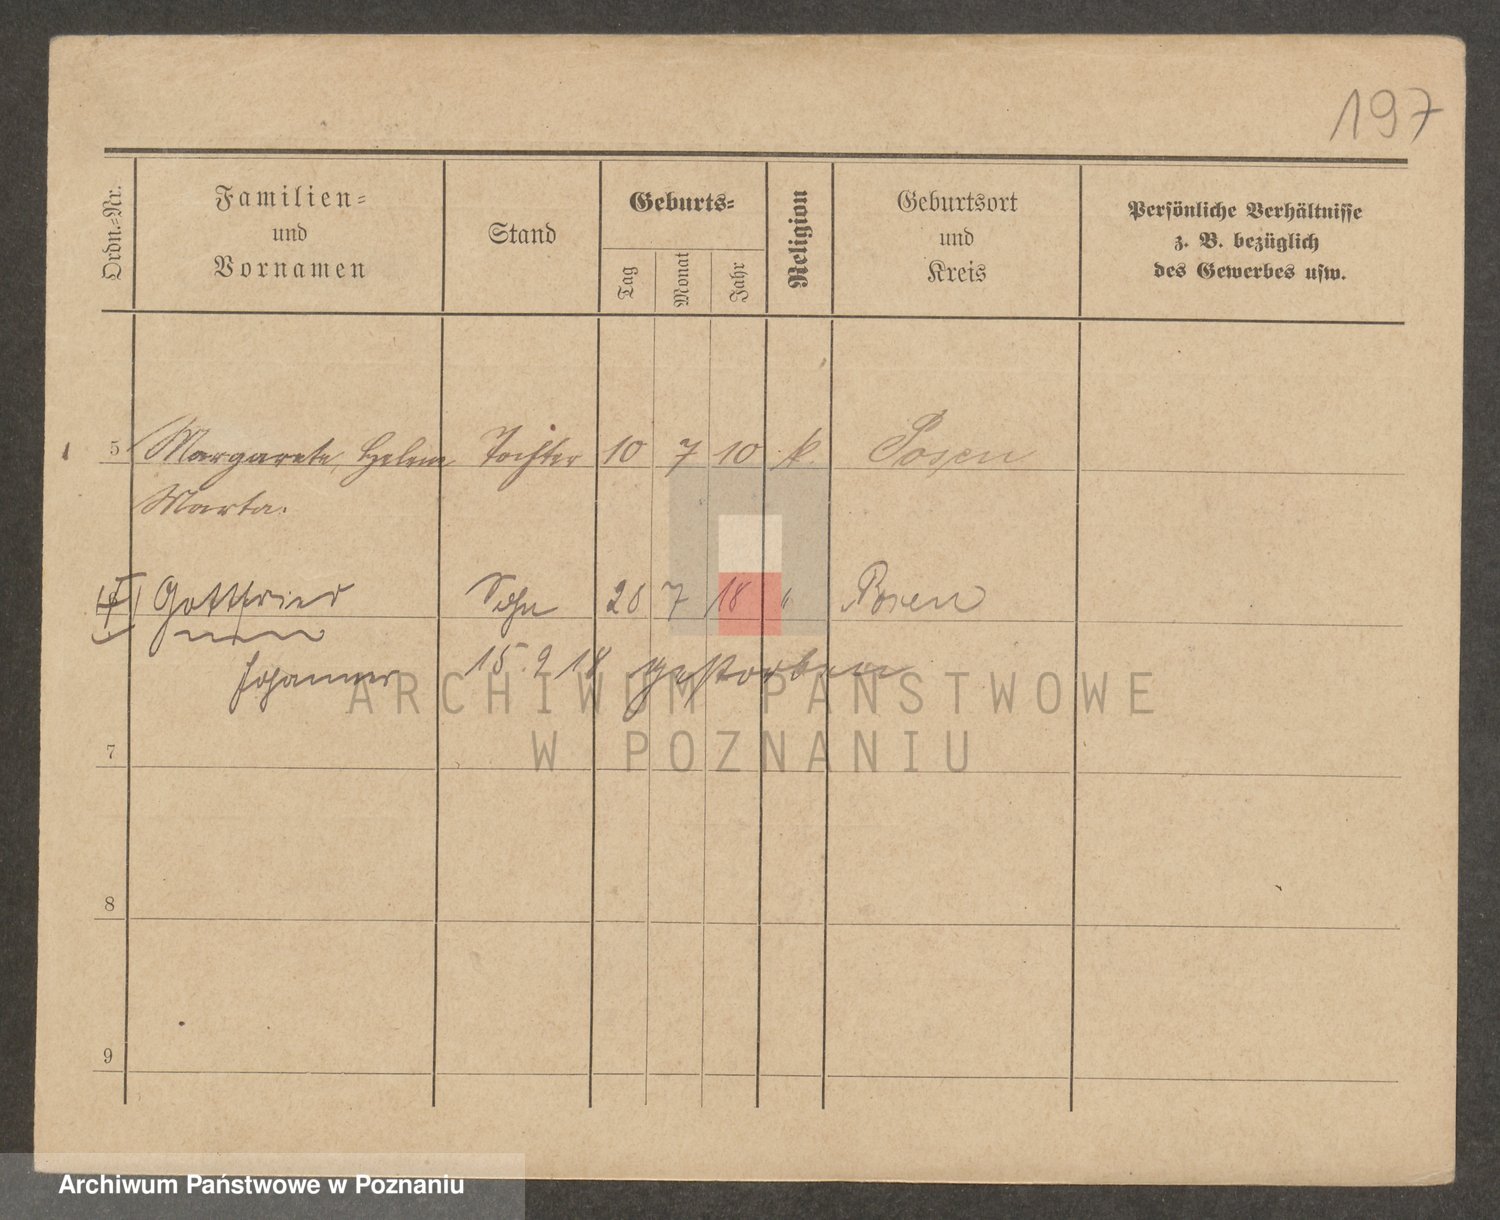 197
Ordn.-Nr.
Familien-
und
Vornamen
Stand
Geburts-
Tag
Monat
Jahr
Religion
Geburtsort
und
Kreis
Persönliche Verhältnisse
z. B. bezüglich
des Gewerbes usw.
5 Margarete, Helene Tochter 10 7 10 k. Posen
Marta.
6 Gottfried Sohn 26 7 18 " Posen
Johannes 15. 9 18 gestorben
ARCHIWUM PAŃSTWOWE
W POZNANIU
7
8
9
Archiwum Państwowe w Poznaniu